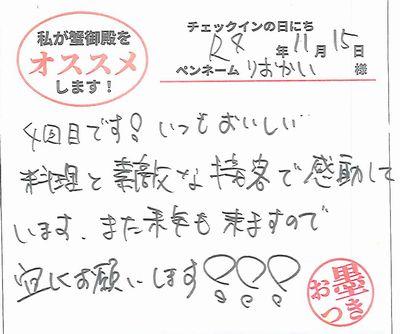 私が蟹御殿を
オススメ
します!
チェックインの日にち
R8年11月15日
ペンネーム りおかい 様
4回目です!いつもおいしい
料理と素敵な接客で感動して
います。また来年も来ますので
宜しくお願いします!!!
お墨つき